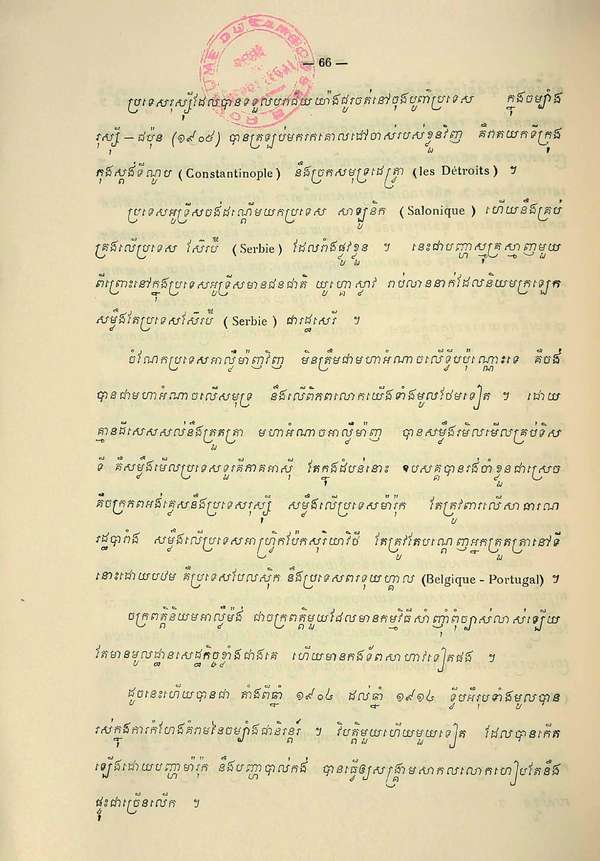 — 66 —
ប្រទេសរុស្ស៊ីដែលបានទទួលបរាជ័យយ៉ាងជូរចត់នៅចុងបូព៌ាប្រទេស ក្នុងចម្បាំង
រុស្ស៊ី – ជប៉ុន (១៩០៥) បានត្រឡប់មករកគោលដៅចាស់របស់ខ្លួនវិញ គឺវាតយកទីក្រុង
កុងស្តង់ទីណូប (Constantinople) និងច្រកសមុទ្រដេត្រូា (les Détroits) ។
ប្រទេសអូទ្រីសចង់ដណ្តើមយកប្រទេស សាឡូនិក (Salonique) ហើយនិងគ្រប់
គ្រងលើប្រទេស សែរប៊ី (Serbie) ដែលរាំងផ្លូវខ្លួន ។ នេះជាបញ្ហាស្មុគ្រស្មាញមួយ
ពីព្រោះនៅក្នុងប្រទេសអូទ្រីសមានជនជាតិ យូហ្គោស្លាវ រាប់លាននាក់ដែលនិយមក្រឡេក
សម្លឹងតែប្រទេសសែរប៊ី (Serbie) ជារដ្ឋសេរី ។
ចំណែកប្រទេសអាល្លឺម៉ាញវិញ មិនត្រឹមជាមហាអំណាចលើទ្វីបប៉ុណ្ណោះទេ គឺចង់
បានជាមហាអំណាចលើសមុទ្រ និងលើពិភពលោកយើងទាំងមូលថែមទៀត ។ ដោយ
គ្មានដីសេសសល់នឹងត្រួតត្រា មហាអំណាចអាល្លឺម៉ាញ បានសម្លឹងរមិលមើលគ្រប់ទិស
ទី គឺសម្លឹងមើលប្រទេសទួរគីភាគអាស៊ី តែក្នុងដំបន់នោះ ឧបសគ្គបានរង់ចាំខ្លួនជាស្រេច
គឺចក្រភពអង់គ្លេសនិងប្រទេសរុស្ស៊ី សម្លឹងលើប្រទេសម៉ារ៉ុក តែត្រូវពារលើសាធារណ
រដ្ឋបារាំង សម្លឹងលើប្រទេសអាហ្វ្រិកប៉ែកសុរិយាវិថី តែត្រូវតែបណ្តេញអ្នកត្រួតត្រានៅទី
នោះដោយបឋម គឺប្រទេសបែលស៊ិក និងប្រទេសពរទុយហ្គាល (Belgique - Portugal) ។
ចក្រពត្តិនិយមអាល្លឺម៉ង់ ជាចក្រពត្តិមួយដែលមានកម្មវិធីសាំញ៉ាំពុំច្បាស់លាស់ឡើយ
តែមានមូលដ្ឋានសេដ្ឋកិច្ចខ្លាំងជាងគេ ហើយមានកងទ័ពសាហាវទៀតផង ។
ដូចនេះហើយបានជា តាំងពីឆ្នាំ ១៩០៤ ដល់ឆ្នាំ ១៩១៤ ទ្វីបអឺរុបទាំងមូលបាន
រស់ក្នុងការកំហែងគំរាមនៃចម្បាំងជានិរន្តរ៍ ។ វិបត្តិមួយហើយមួយទៀត ដែលបានកើត
ឡើងដោយបញ្ហាម៉ារ៉ុក និងបញ្ហាបាល់កង់ បានធ្វើឲ្យសង្គ្រាមសាកលលោកហៀបតែនឹង
ផ្ទុះជាច្រើនលើក ។